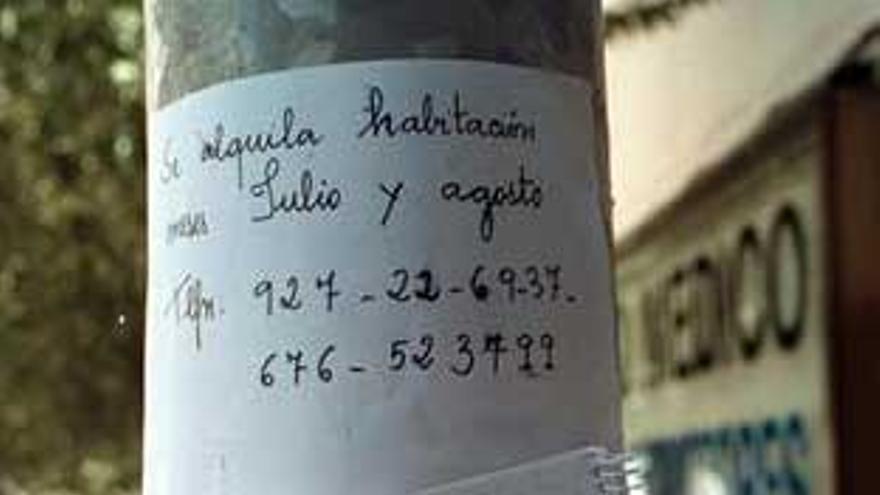 Se alquila habitación
meses Julio y agosto
Tlfn. 927-22-69-37-
676-523799
MEDICO